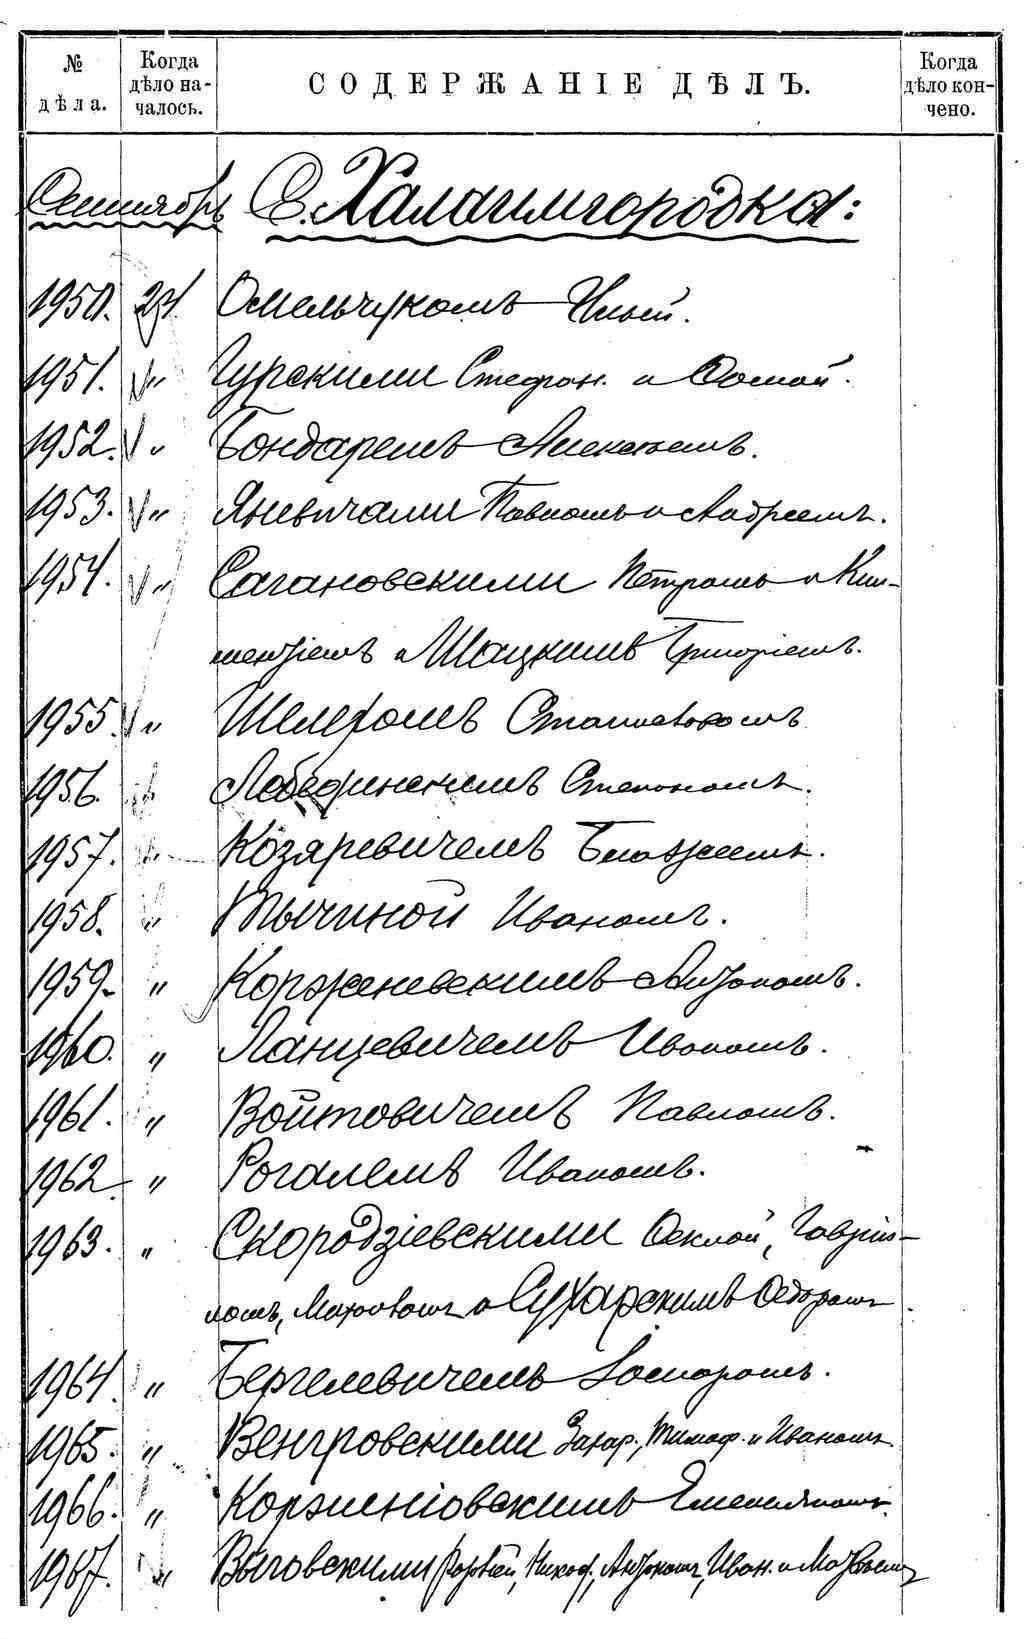 № дѣла.
Когда дѣло на-
чалось.
СОДЕРЖАНІЕ ДѢЛЪ.
Когда дѣло кон-
чено.
Сентябрь С. Халаимгородка:
1950. 24. Омельчукомъ Ильей.
1951. " Гурскими Стефан. и Фомой.
1952. " Бондаремъ Алексѣемъ.
1953. " Яневичами Павломъ и Андреемъ.
1954. " Сагановскими Петромъ и Кли-
ментіемъ и Шацкимъ Григоріемъ.
1955. " Шелегомъ Станиславомъ
1956. " Лебединскимъ Степаномъ.
1957. " Козяревичемъ Блажеемъ.
1958. " Тычиной Иваномъ.
1959. " Корженевскимъ Антономъ.
1960. " Ланцевичемъ Иваномъ.
1961. " Войтовичемъ Павломъ.
1962. " Рогалемъ Иваномъ.
1963. " Скородзіевскими Феклой, Гаврии-
ломъ, и Сухарскимъ Федоромъ.
1964. " Бергелевичемъ
1965. " Венгровскими Захар., Тимоф. и Иваномъ.
1966. " Корженіовскимъ Емельяномъ.
1967. " Выговскими Никоф., Антономъ, Иван. и Матвѣемъ